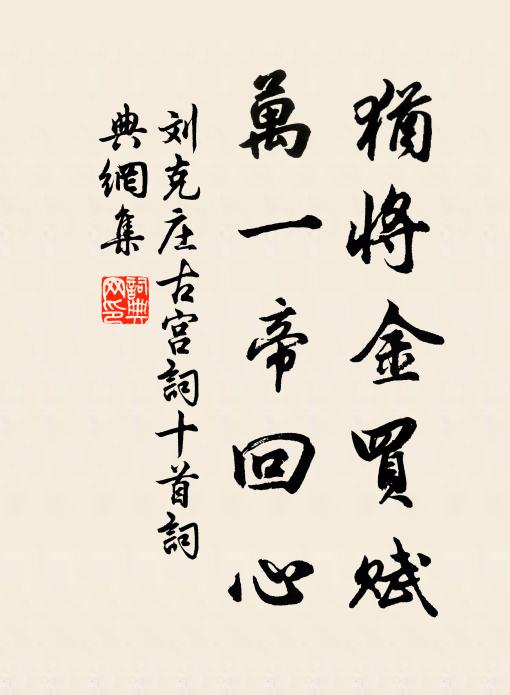 猶將金買赋
萬一帝回心
刘克庄古宫詞十首詞
典網集
詞典网印